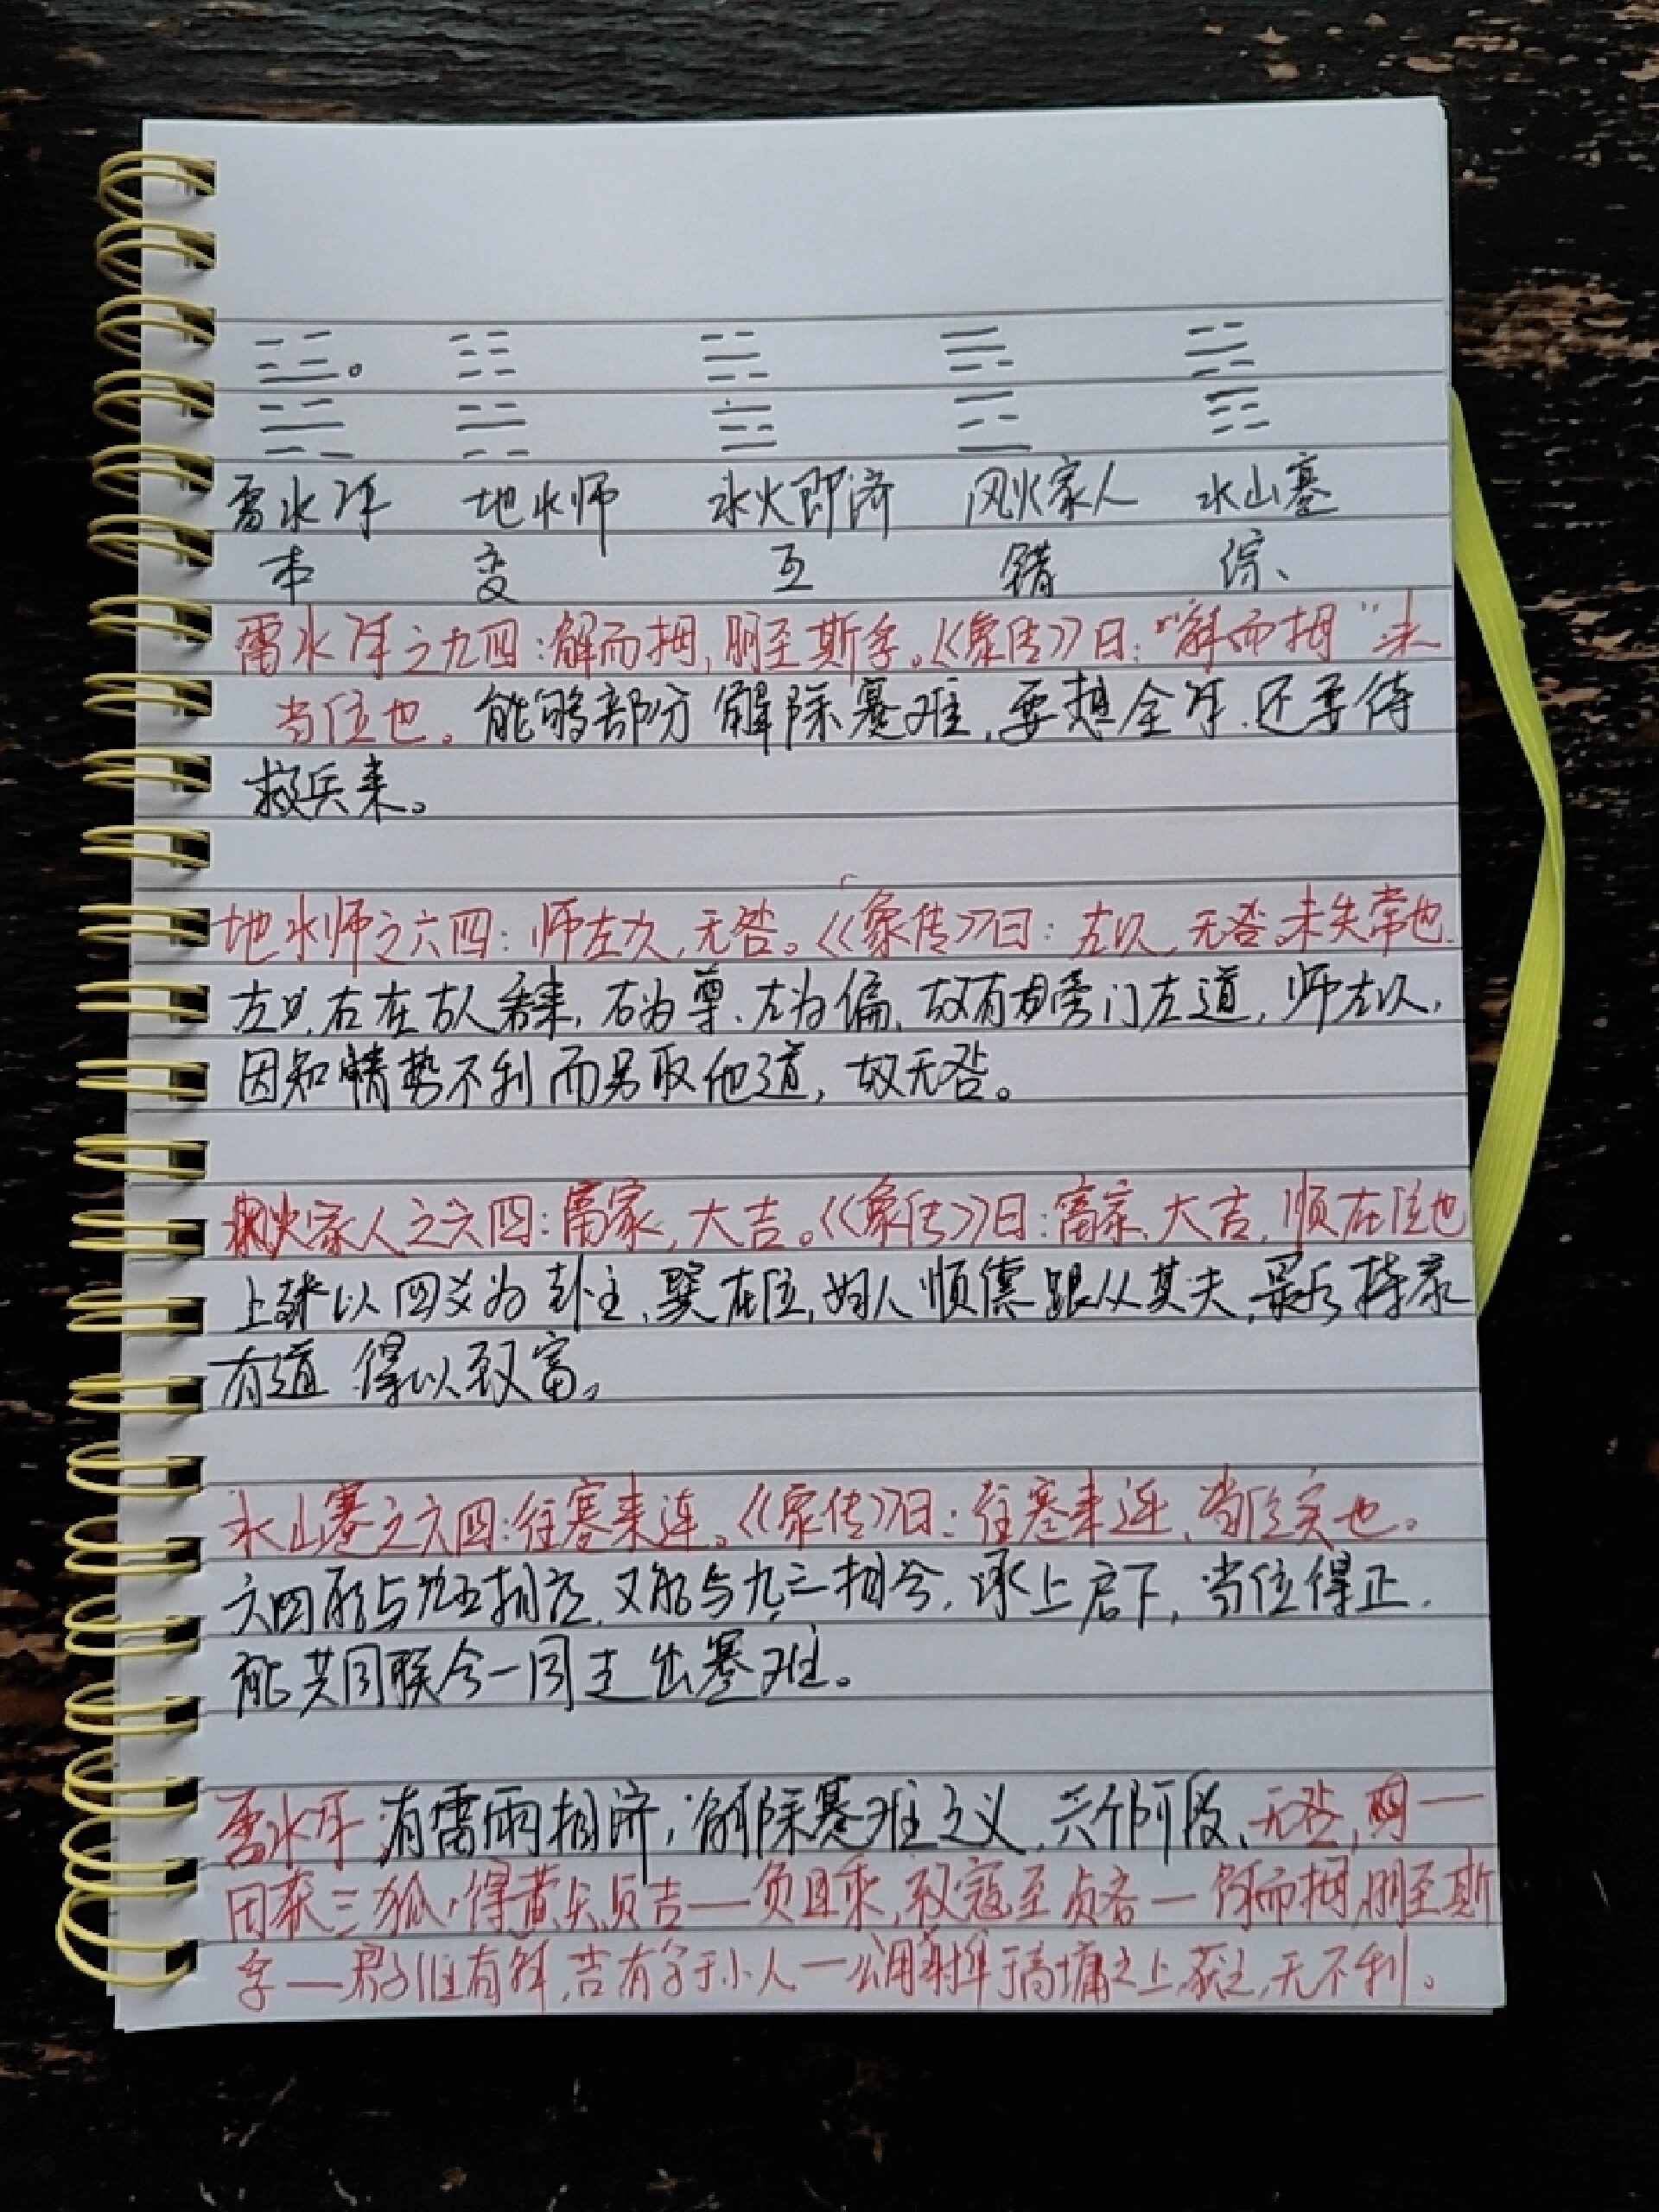 雷水解 地水师 水火即济 风火家人 水山蹇
本 变 互 错 综、
雷水解之九四:解而拇,朋至斯孚。《象传》曰:“解而拇”未
当位也。能够部分解除蹇难,要想全解.还要待
救兵来。
地水师之六四:师左次,无咎。《象传》曰:左次,无咎。未失常也.
左次,右在古人看来,右为尊、左为偏,故有旁门左道,师左次,
因知情势不利而另取他道,故无咎。
风火家人之六四:富家,大吉。《象传》曰:富家、大吉,顺在位也
上卦以四爻为卦主、巽在位,妇人顺德跟从其夫,最后持家
有道 得以致富。
水山蹇之六四:往蹇来连。《象传》曰:往蹇来连,当位实也。
六四能与九五相应,又能与九三相合,承上启下,当位得正.
能共同联合一同走出蹇难。
雷水解 有雷雨相济,解除蹇难之义,六个阶段、无咎,
田获三狐,得黄矢贞吉—负且乘,致寇至贞吝—解而拇,朋至斯
孚—君子维有解,吉有孚于小人—公用射隼于高墉之上获之,无不利。